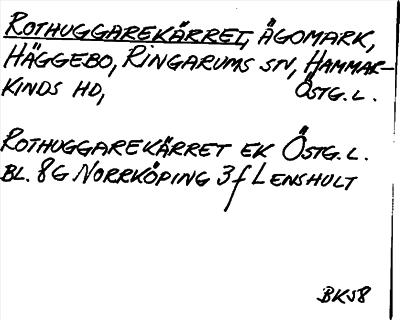 ROTHUGGAREKÄRRET, ÄGOMARK,
HÄGGEBO, RINGARUMS SN, HAMMAR-
KINDS HD, ÖSTG. L.
ROTHUGGAREKÄRRET EK ÖSTG. L.
BL. 8G NORRKÖPING 3f LENSHULT
BKJ8